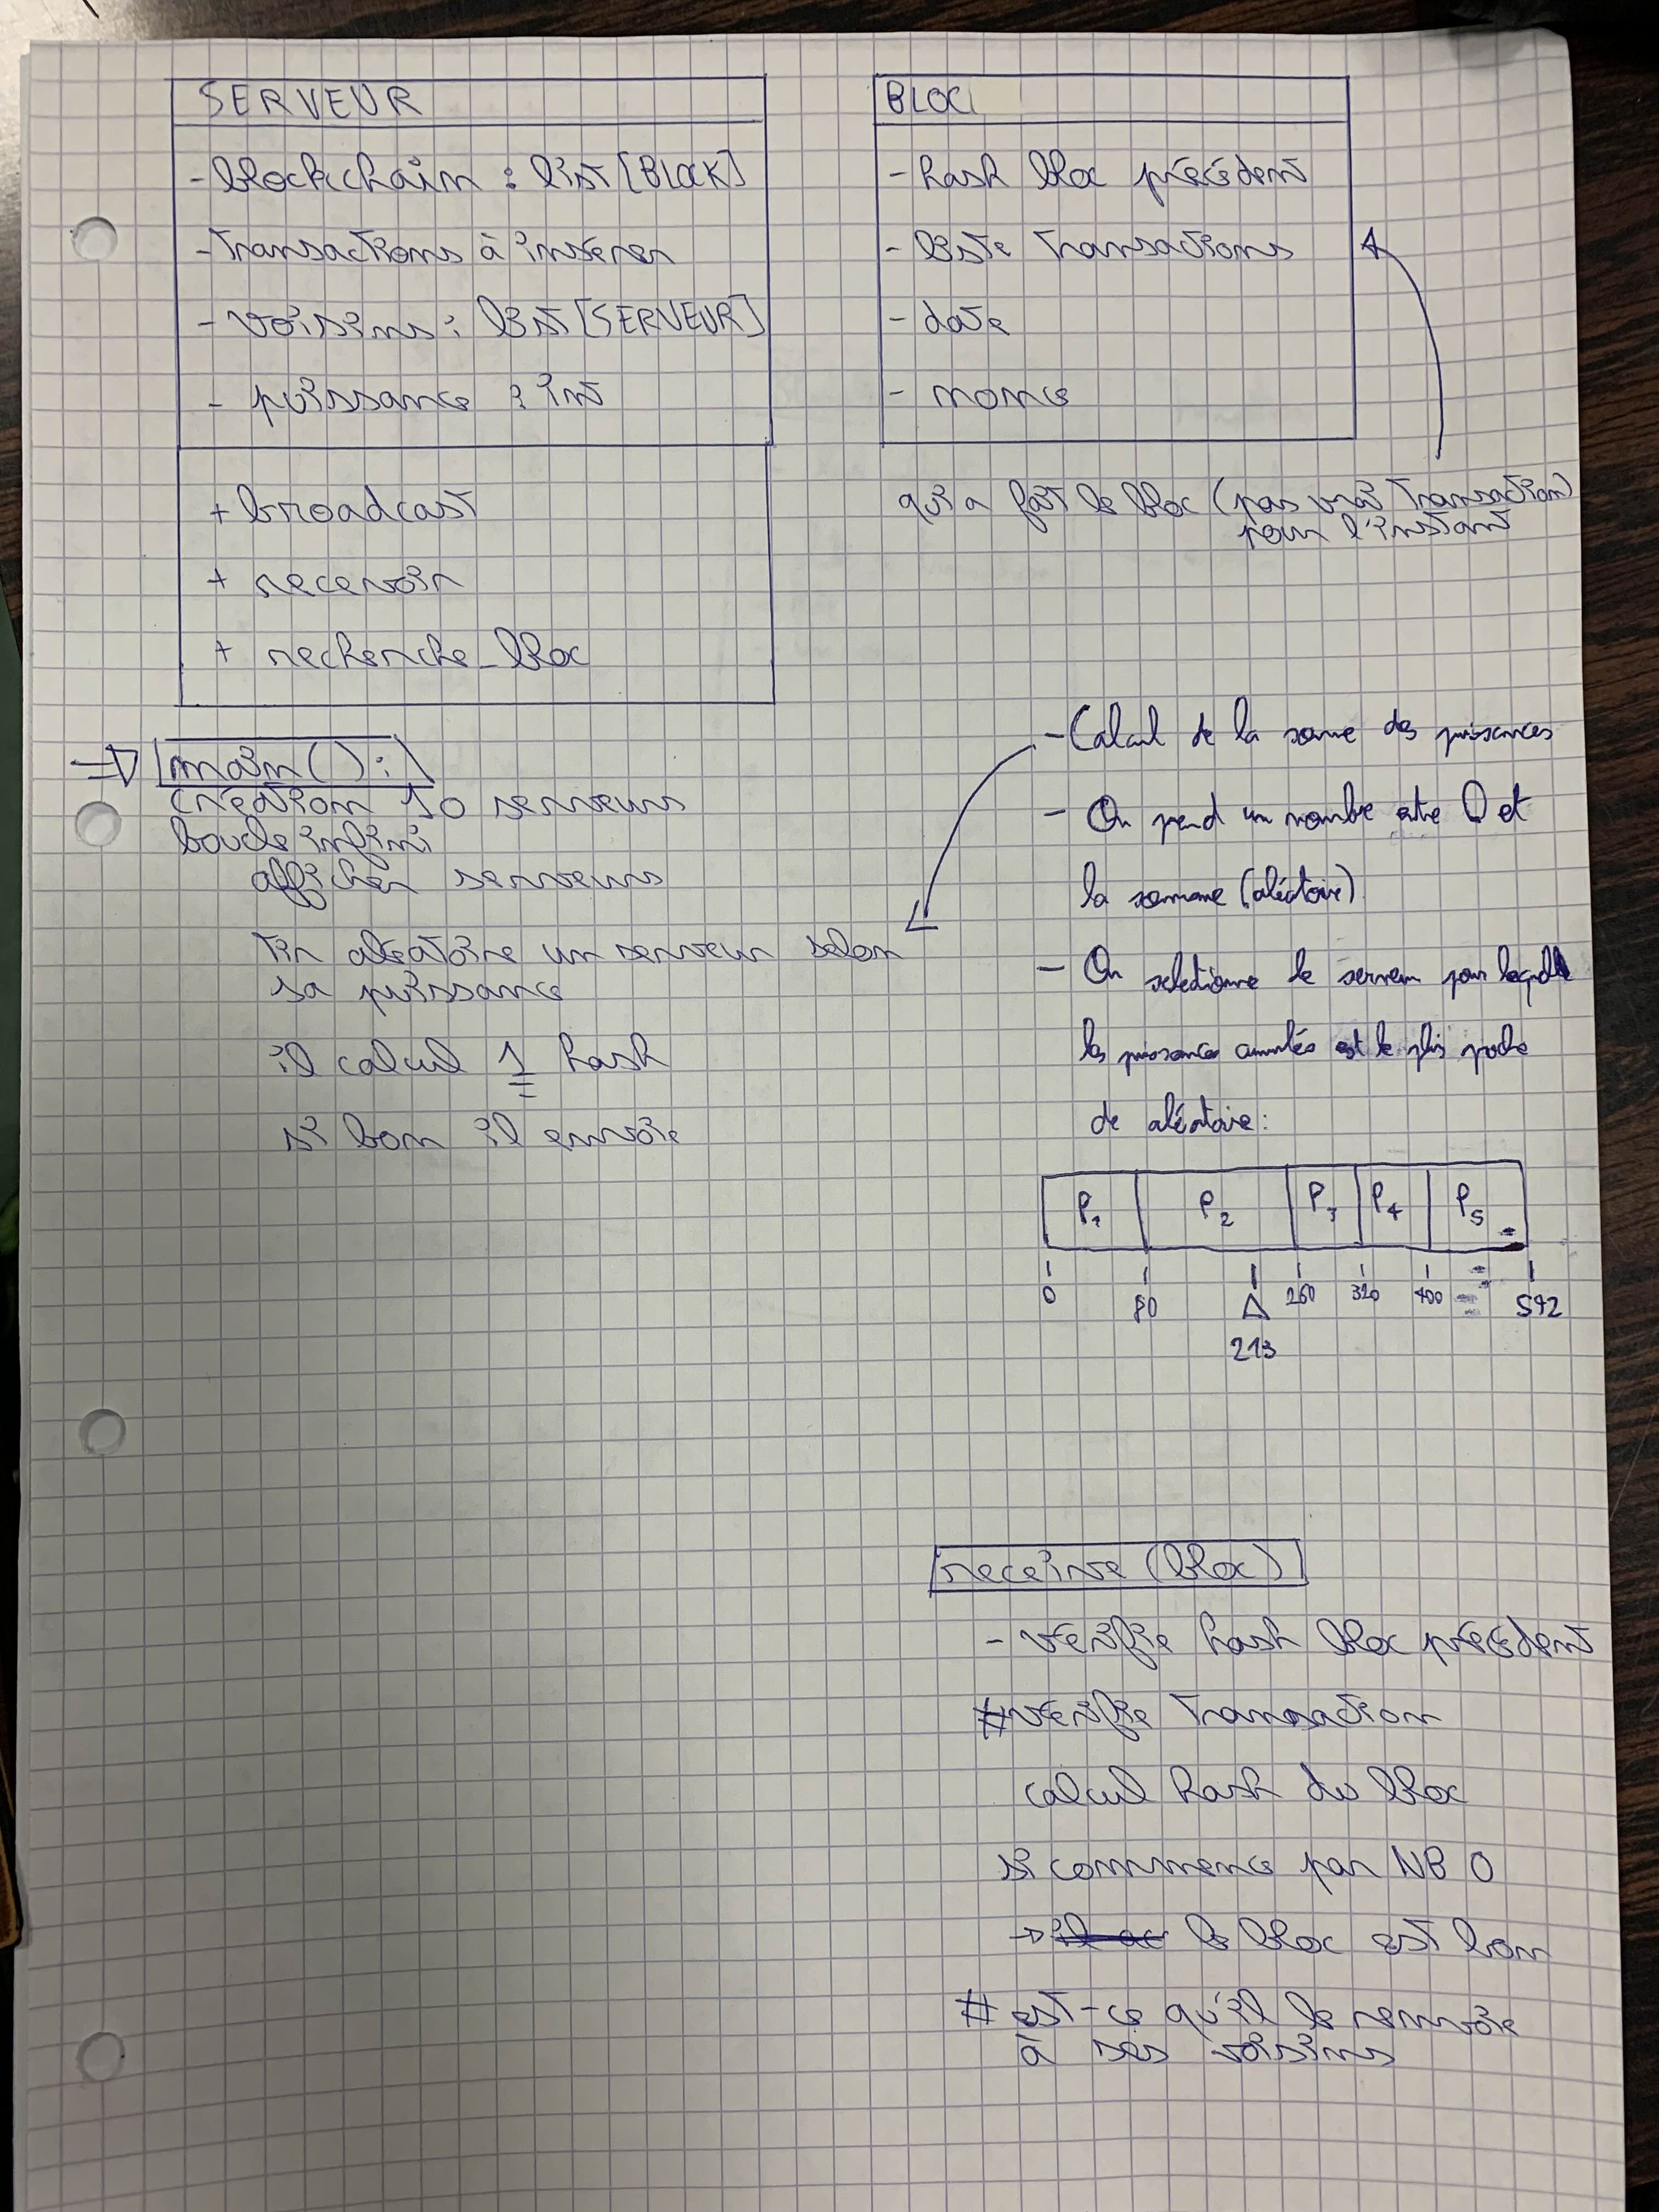 SERVEUR
- blockchain : list [BLOCK]
- transactions à insérer
- voisins : list [SERVEUR]
- puissance : int
+ broadcast
+ recevoir
+ recherche_bloc
BLOC
- hash bloc précédent
- liste transactions
- date
- nonce
qui a fait le bloc (pas vrai transaction)
pour l'instant
=> main():
création 10 serveurs
boucle infini
afficher serveurs
tir aléatoire un serveur selon
sa puissance
il calcul 1 hash
si bon il envoie
- Calcul de la somme des puissances
- On prend un nombre entre 0 et
la somme (aléatoire)
- On selectionne le serveur pour lequel
les puissances cumulés est le plus proche
de aléatoire :
P1 P2 P3 P4 P5
0 80 260 320 400 592
213
receive (bloc)
- vérifie hash bloc précédent
# vérifie transaction
calcul hash du bloc
si commence par NB 0
-> le bloc est bon
# est-ce qu'il le renvoie
à ses voisins